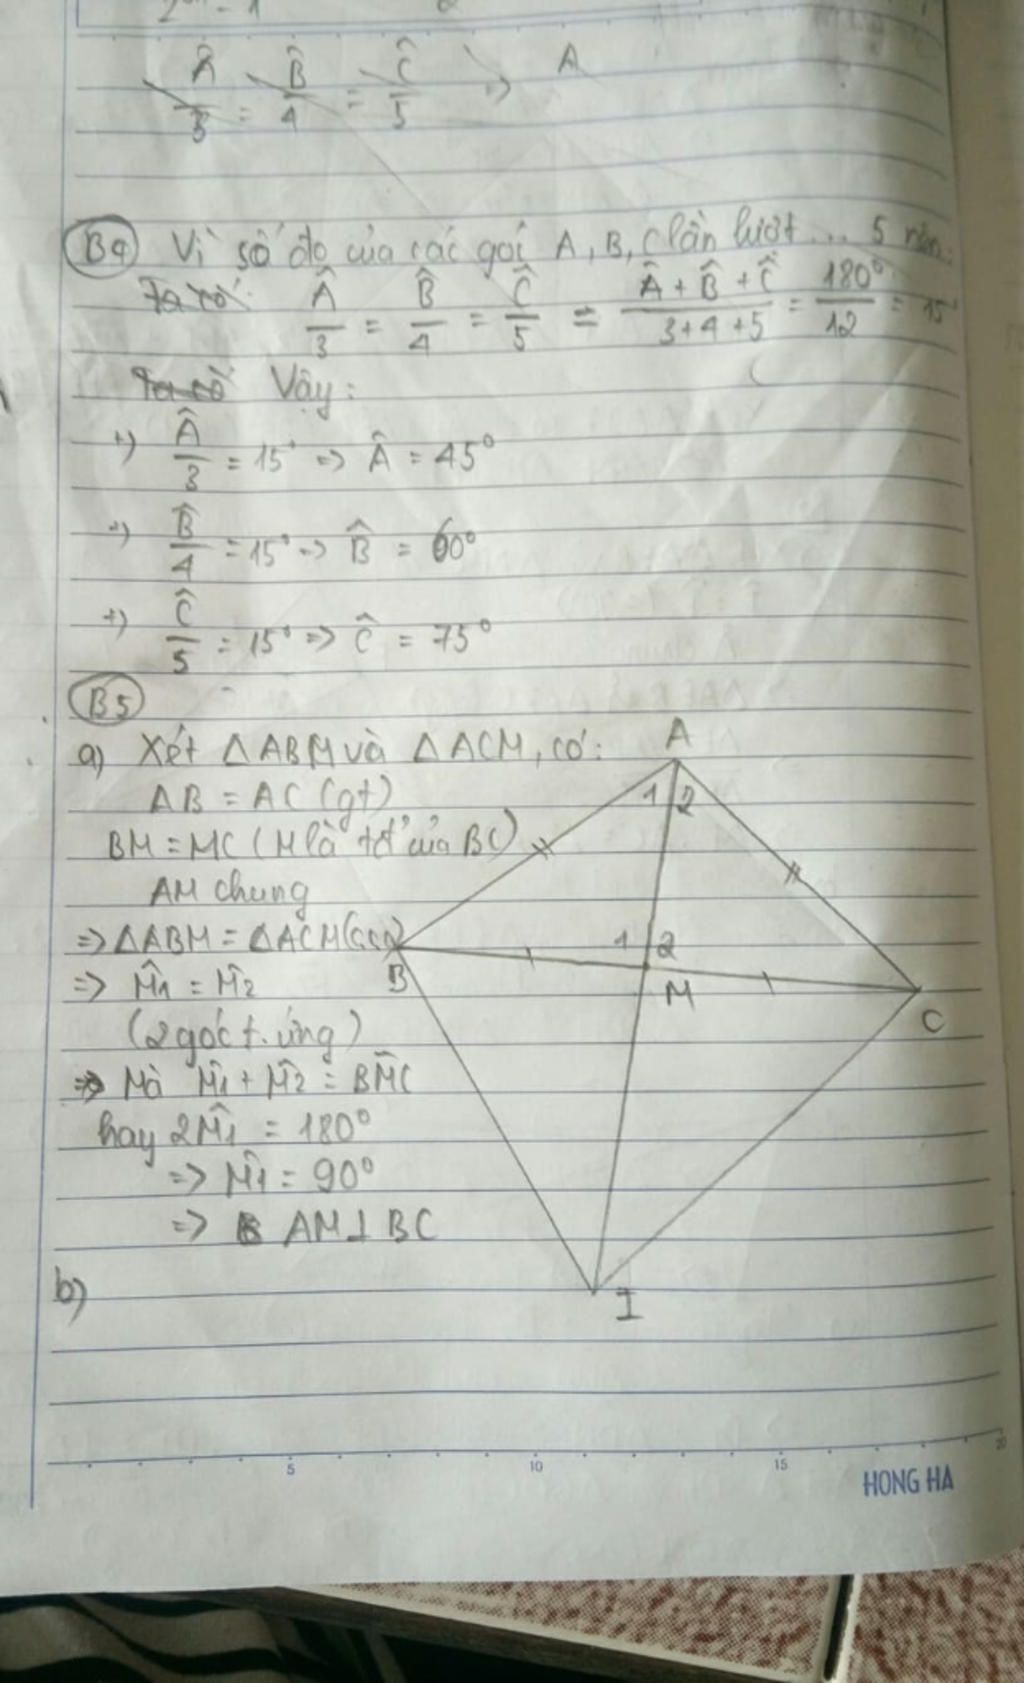 Â/3 = B̂/4 = Ĉ/5 => A
B4 Vì số đo của các gói A, B, C lần lượt... 5 nên:
Ta có: Â/3 = B̂/4 = Ĉ/5 = (Â + B̂ + Ĉ)/(3+4+5) = 180°/12 = 15°
Ta có Vậy:
+) Â/3 = 15° => Â = 45°
+) B̂/4 = 15° => B̂ = 60°
+) Ĉ/5 = 15° => Ĉ = 75°
B5
a) Xét △ABM và △ACM, có:
AB = AC (gt)
BM = MC (M là tđ của BC)
AM chung
=> △ABM = △ACM (c.c.c)
=> M̂1 = M̂2
(2 góc t.ứng)
=> Mà M̂1 + M̂2 = BM̂C
hay 2M̂1 = 180°
=> M̂1 = 90°
=> AM ⊥ BC
b)
A
1 2
1 2
B
M
C
I
5 10 15 20
HONG HA